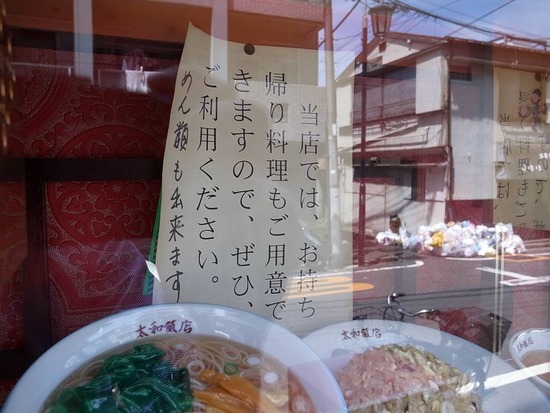 当店では、お持ち
帰り料理もご用意で
きますので、ぜひ、
ご利用ください。
めん類も出来ます
太和飯店
太和飯店